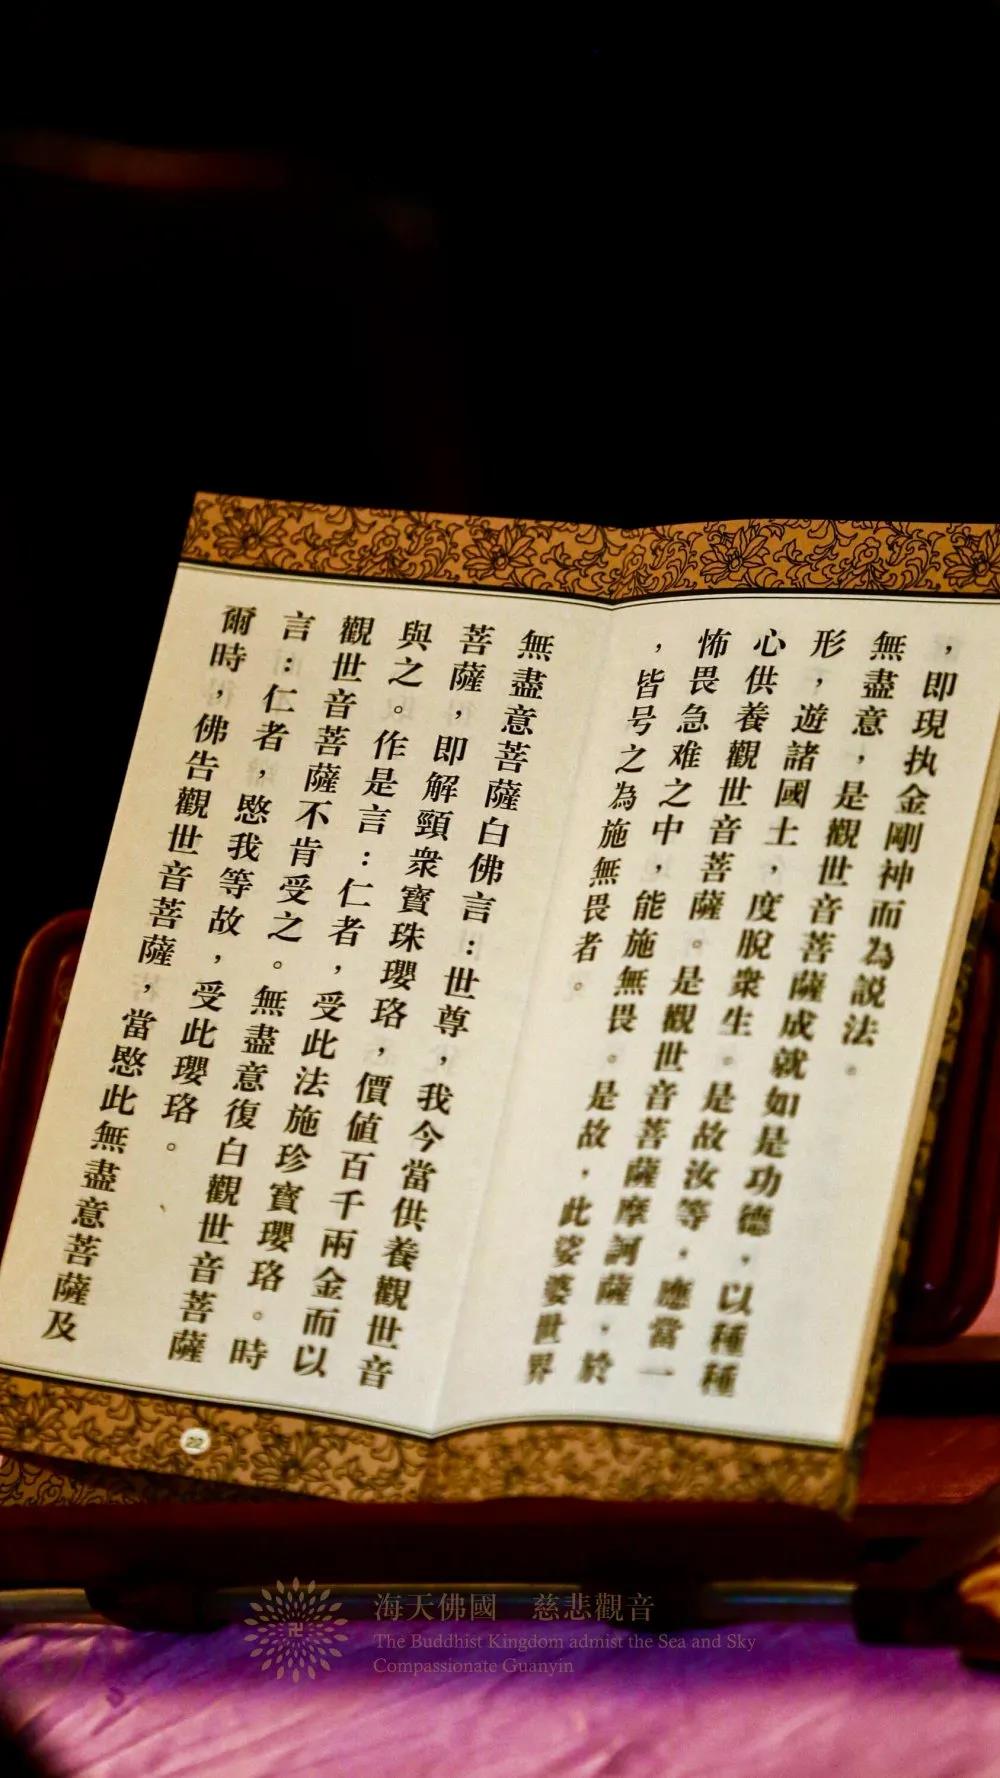 ，即現执金剛神而為説法。
無盡意，是觀世音菩薩成就如是功德，以種種
形，遊諸國土，度脫衆生。是故汝等，應當一
心供養觀世音菩薩。是觀世音菩薩摩訶薩，於
怖畏急难之中，能施無畏。是故，此娑婆世界
，皆号之為施無畏者。
無盡意菩薩白佛言：世尊，我今當供養觀世音
菩薩，即解頸衆寳珠瓔珞，價值百千兩金而以
與之。作是言：仁者，受此法施珍寳瓔珞。時
觀世音菩薩不肯受之。無盡意復白觀世音菩薩
言：仁者，愍我等故，受此瓔珞。
爾時，佛告觀世音菩薩，當愍此無盡意菩薩及
22
海天佛國　慈悲觀音
The Buddhist Kingdom admist the Sea and Sky
Compassionate Guanyin